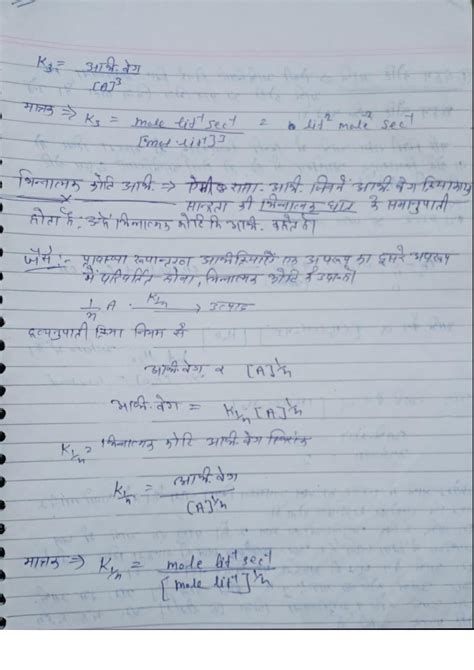 K₃ = आभि. वेग / [A]³
मात्रक ⇒ K₃ = mole lit⁻¹ sec⁻¹ / [mol-lit⁻¹]³ = lit² mole⁻² sec⁻¹
भिन्नात्मक कोटि आभि. ⇒ ऐसी रासा. आभि. जिनमें आभि. वेग क्रियाकारक
सान्द्रता की भिन्नात्मक घात के समानुपाती
होता है, उन्हें भिन्नात्मक कोटि कि आभि. कहते है।
जैसे :- रूपान्तरण आभिक्रियाएँ एक अपररूप का दूसरे अपररूप
में परिवर्तित होना, भिन्नात्मक कोटि के उदा. है।
1/n A K1/n → उत्पाद
द्रव्यानुपाती क्रिया नियम से
आभि. वेग ∝ [A]^1/n
आभि. वेग = K1/n [A]^1/n
K1/n = भिन्नात्मक कोटि आभि. वेग स्थिरांक
K1/n = आभि. वेग / [A]^1/n
मात्रक ⇒ K1/n = mole lit⁻¹ sec⁻¹ / [mole lit⁻¹]^1/n